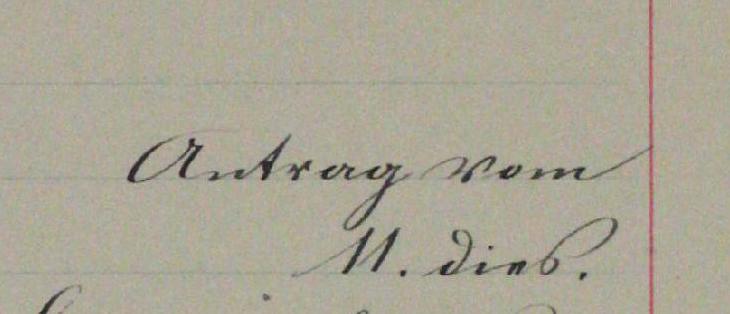 Antrag vom
11. dies.